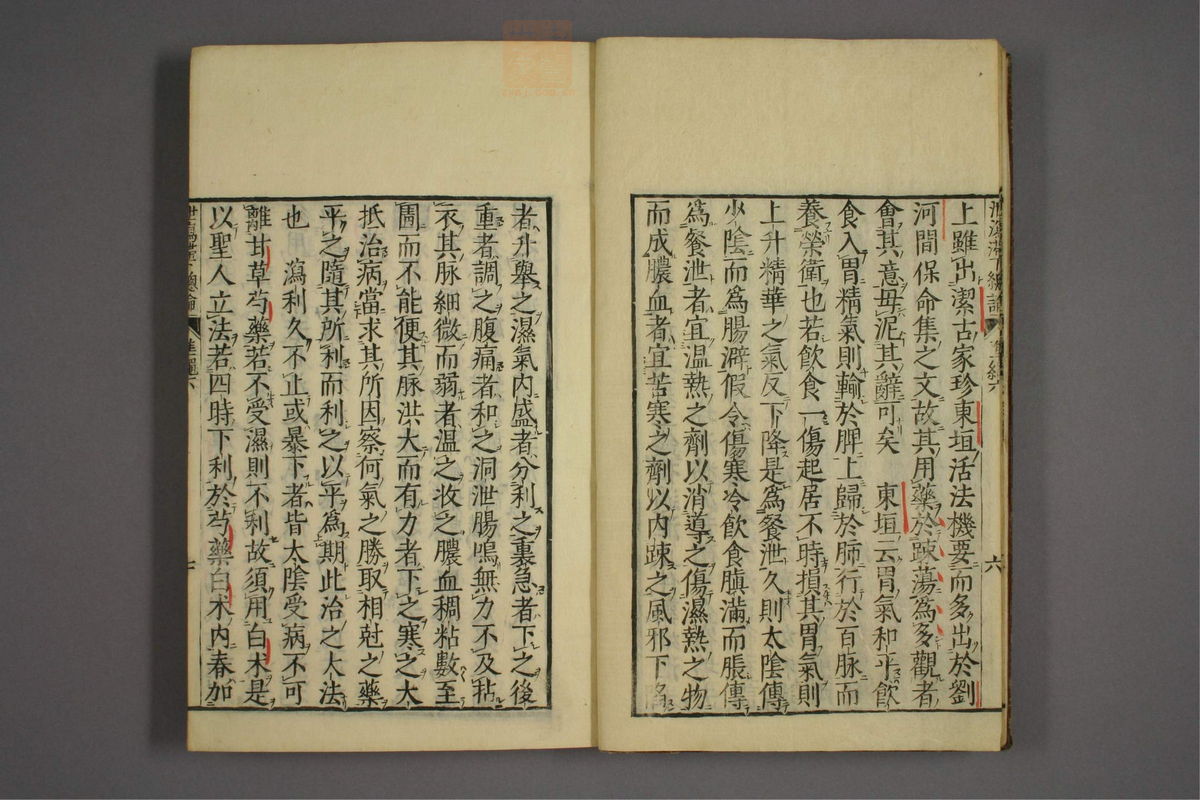 上雖出潔古家珍東垣活法機要而多出於劉
河間保命集之文故其用藥於踈蕩為多觀者
會其意毋泥其辭可矣　東垣云胃氣和乎飲
食入胃精氣則輸於脾上歸於肺行於百脉而
養榮衛也若飲食一傷起居不時損其胃氣則
上升精華之氣反下降是爲飱泄久則太陰傳
少陰而爲腸澼假令傷寒冷飲食䐜滿而脹傳
爲飱泄者宜温熱之劑以消導之傷濕熱之物
而成膿血者宜苦寒之劑以内踈之風邪下陷
六
者升舉之濕氣内盛者分利之裏急者下之後
重者調之腹痛者和之洞泄腸鳴無力不及拈
衣其脉細微而弱者温之收之膿血稠粘數至
圊而不能便其脉洪大而有力者下之寒之大
抵治病當求其所因察何氣之勝取相尅之藥
平之隨其所利而利之以平爲期此治之大法
也　瀉利久不止或暴下者皆太陰受病不可
離甘草芍藥若不受濕則不利故須用白术是
以聖人立法若四時下利於芍藥白术内春加
七